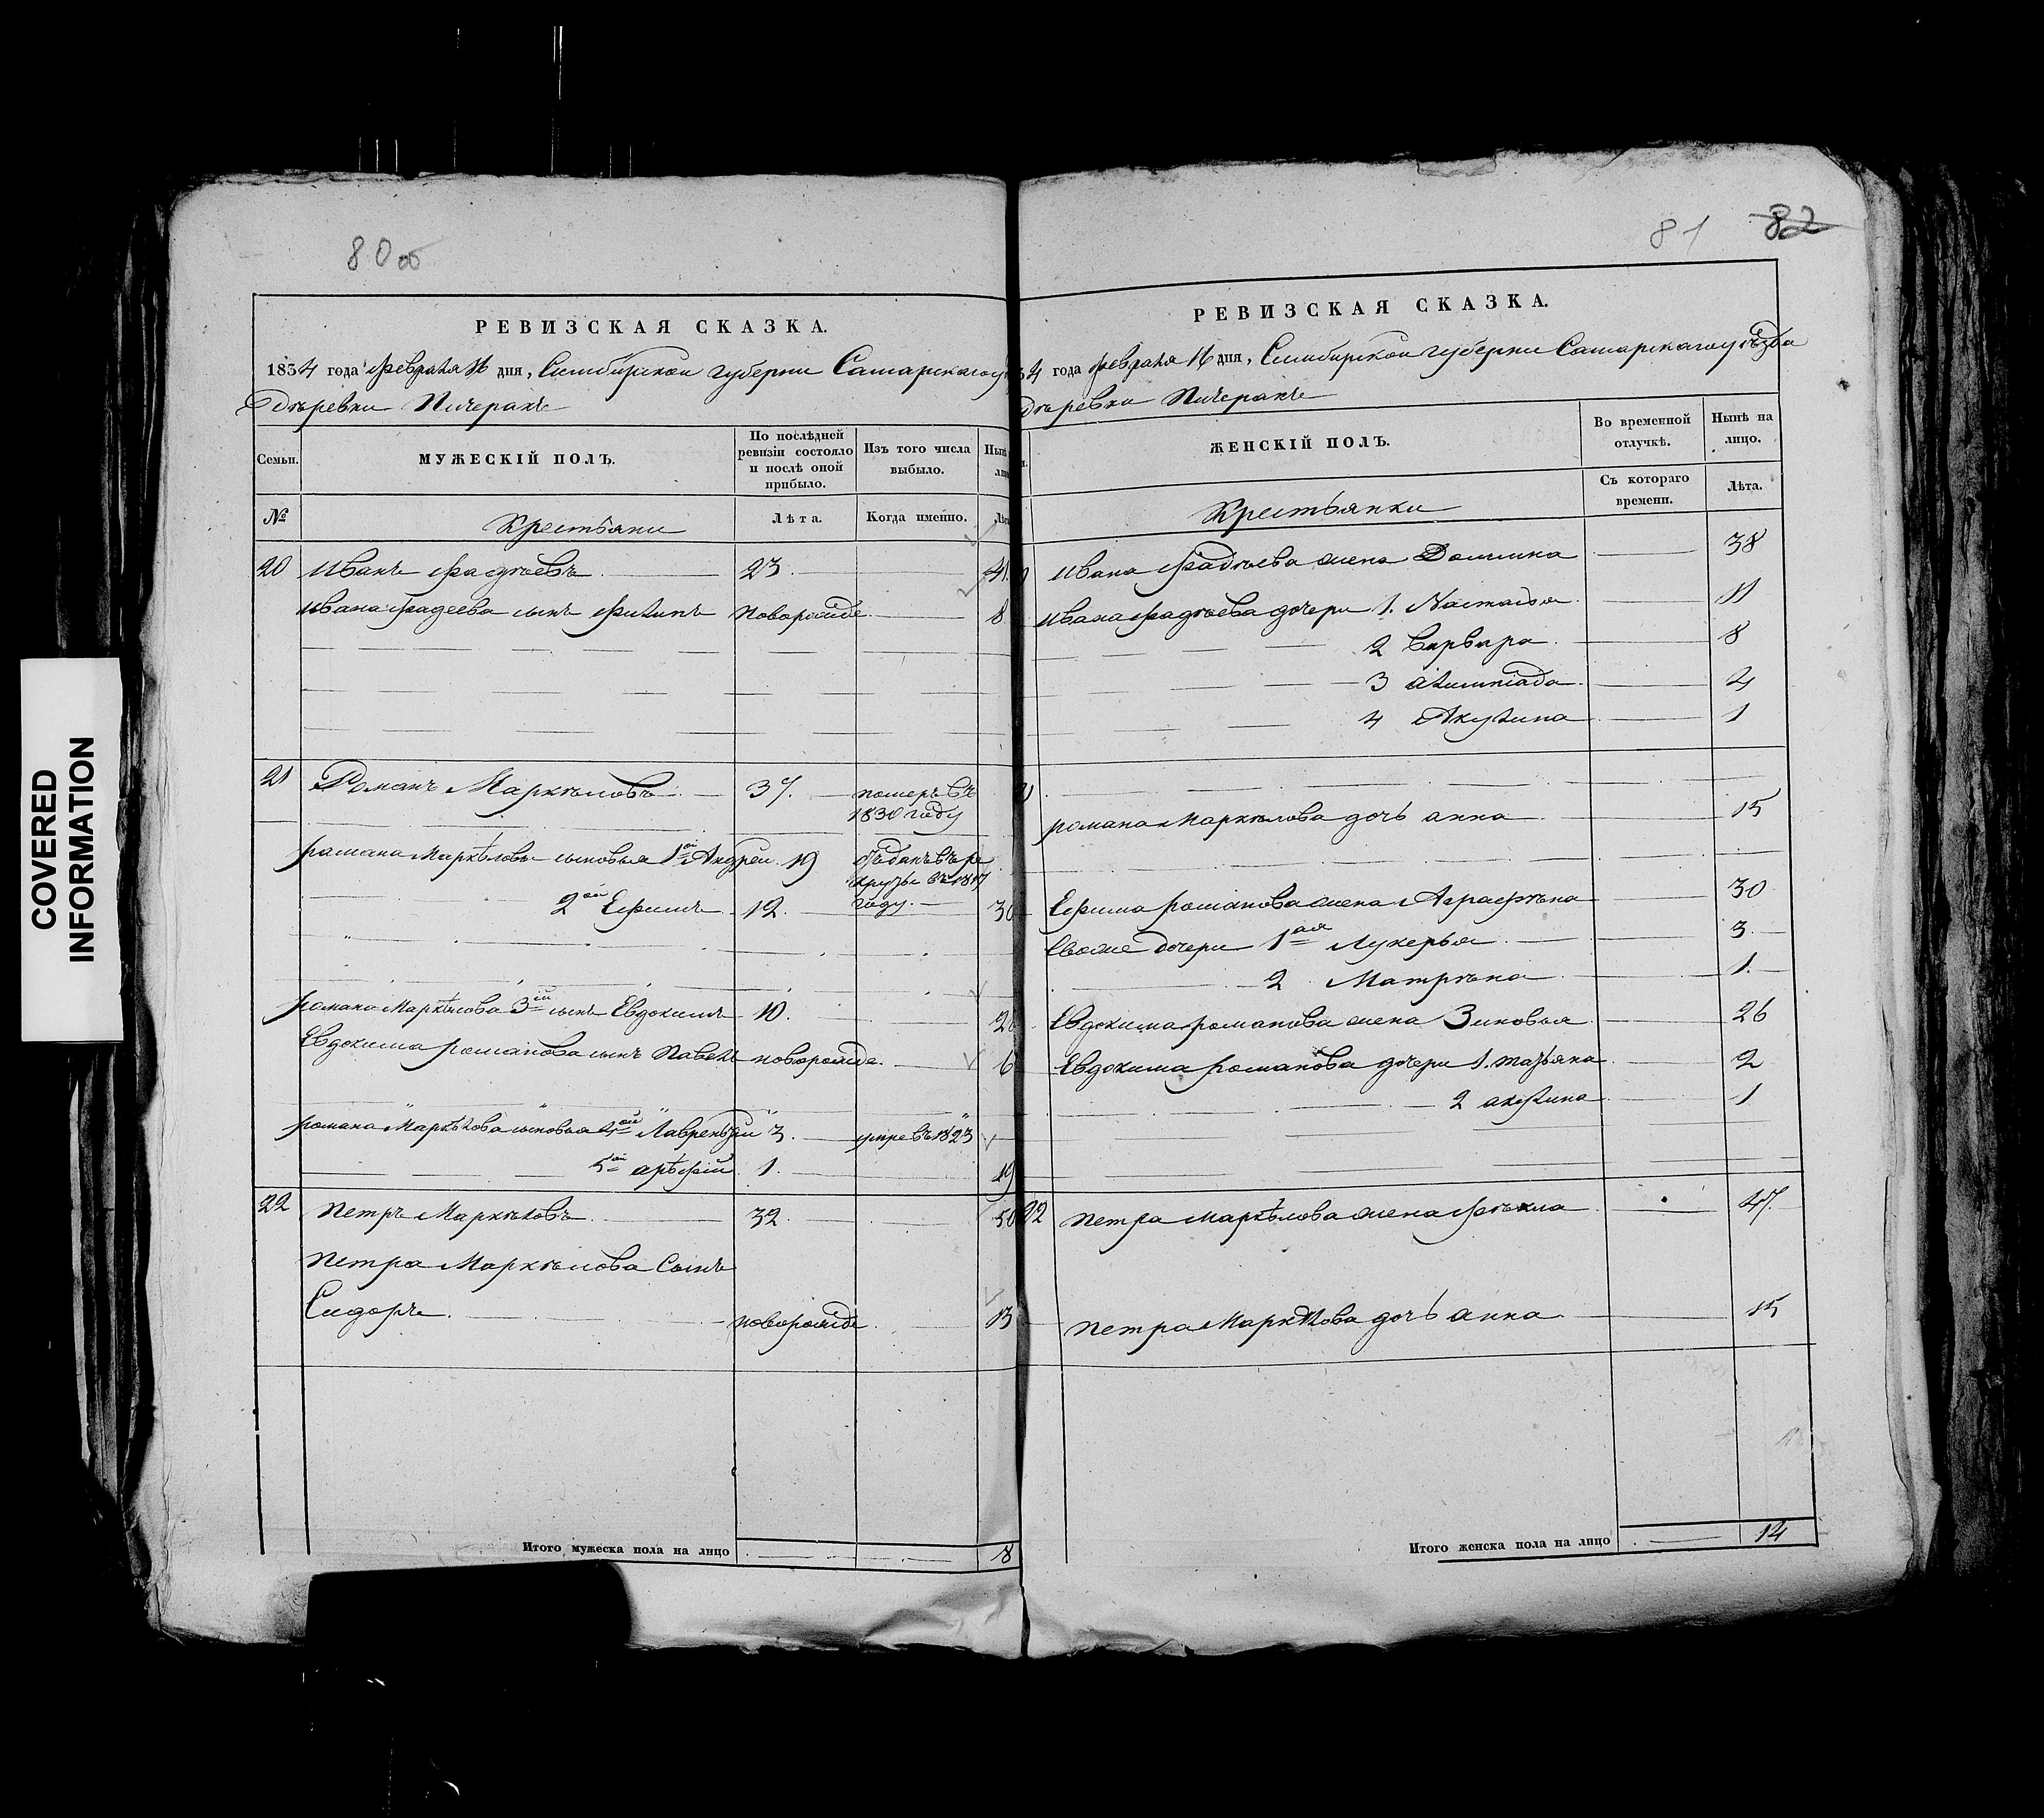 COVERED
INFORMATION
80 об
РЕВИЗСКАЯ СКАЗКА.
1834 года февраля 16 дня, Симбирской губерни Самарскагоу
Деревни Пичеракъ
Семьи. МУЖЕСКІЙ ПОЛЪ. По послѣдней ревизіи состояло и послѣ оной прибыло. Изъ того числа выбыло. Нынѣ
№ Крестьяни Лѣта. Когда именно.
20 Иванъ Фадѣевъ 23. 41.
Ивана Фадеева сынъ Филипъ новорожде 8
21 Романъ Маркѣловъ 37. померъ въ
1830 году
романа Маркѣлова сыновья 1ой Андрей 19 въ ре
круты въ 1817
2ой Ефимъ 12. году. 30
романа Маркѣлова 3ій сынъ Евдокимъ 10. 2
Евдокима романова сынъ Павелъ новорожде. 6
романа Маркѣлова сыновья 4ой Лаврентій 3. умре въ 1823
5ой арѣфій 1. 19
22 Петръ Маркѣловъ 32. 50
Петра Маркѣлова Сынъ
Сидоръ новорожде 13
Итого мужеска пола на лицо 8
81 82
РЕВИЗСКАЯ СКАЗКА.
4 года февраля 16 дня, Симбирской губерни Самарскагоу ѣзда
Деревни Пичеракъ
ЖЕНСКІЙ ПОЛЪ. Во временной отлучкѣ. Нынѣ на лицо.
Крестьянки Съ котораго времени. Лѣта.
Ивана Фадѣева жена Домника 38
Ивана Фадѣева дочери 1. Настасья 11
2 Варвара 8
3 алимпіада 4
4 Акулина 1
романа Маркѣлова дочь анна 15
Ефима романова жена Аграфѣна 30
Евоже дочери 1ая Лукерья 3.
2 Матрѣна 1.
Евдокима романова жена Зиновья 26
Евдокима романова дочери 1. татьяна 2
2 акулина 1
22 Петра маркѣлова жена фѣкла 47.
Петра Маркѣлова дочь анна 15
Итого женска пола на лицо 14